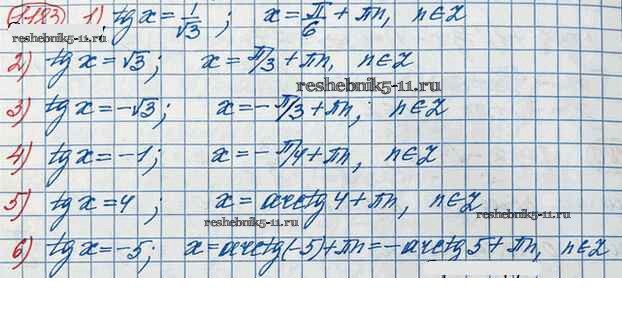 (183) 1) tg x = 1/√3 ; x = π/6 + πn, n∈Z
reshebnik5-11.ru
2) tg x = √3; x = π/3 + πn, n∈Z
reshebnik5-11.ru
3) tg x = -√3; x = -π/3 + πn; n∈Z
4) tg x = -1; x = -π/4 + πn, n∈Z
5) tg x = 4 ; x = arctg 4 + πn, n∈Z
reshebnik5-11.ru
reshebnik5-11.ru
6) tg x = -5; x = arctg(-5) + πn = -arctg 5 + πn, n∈Z